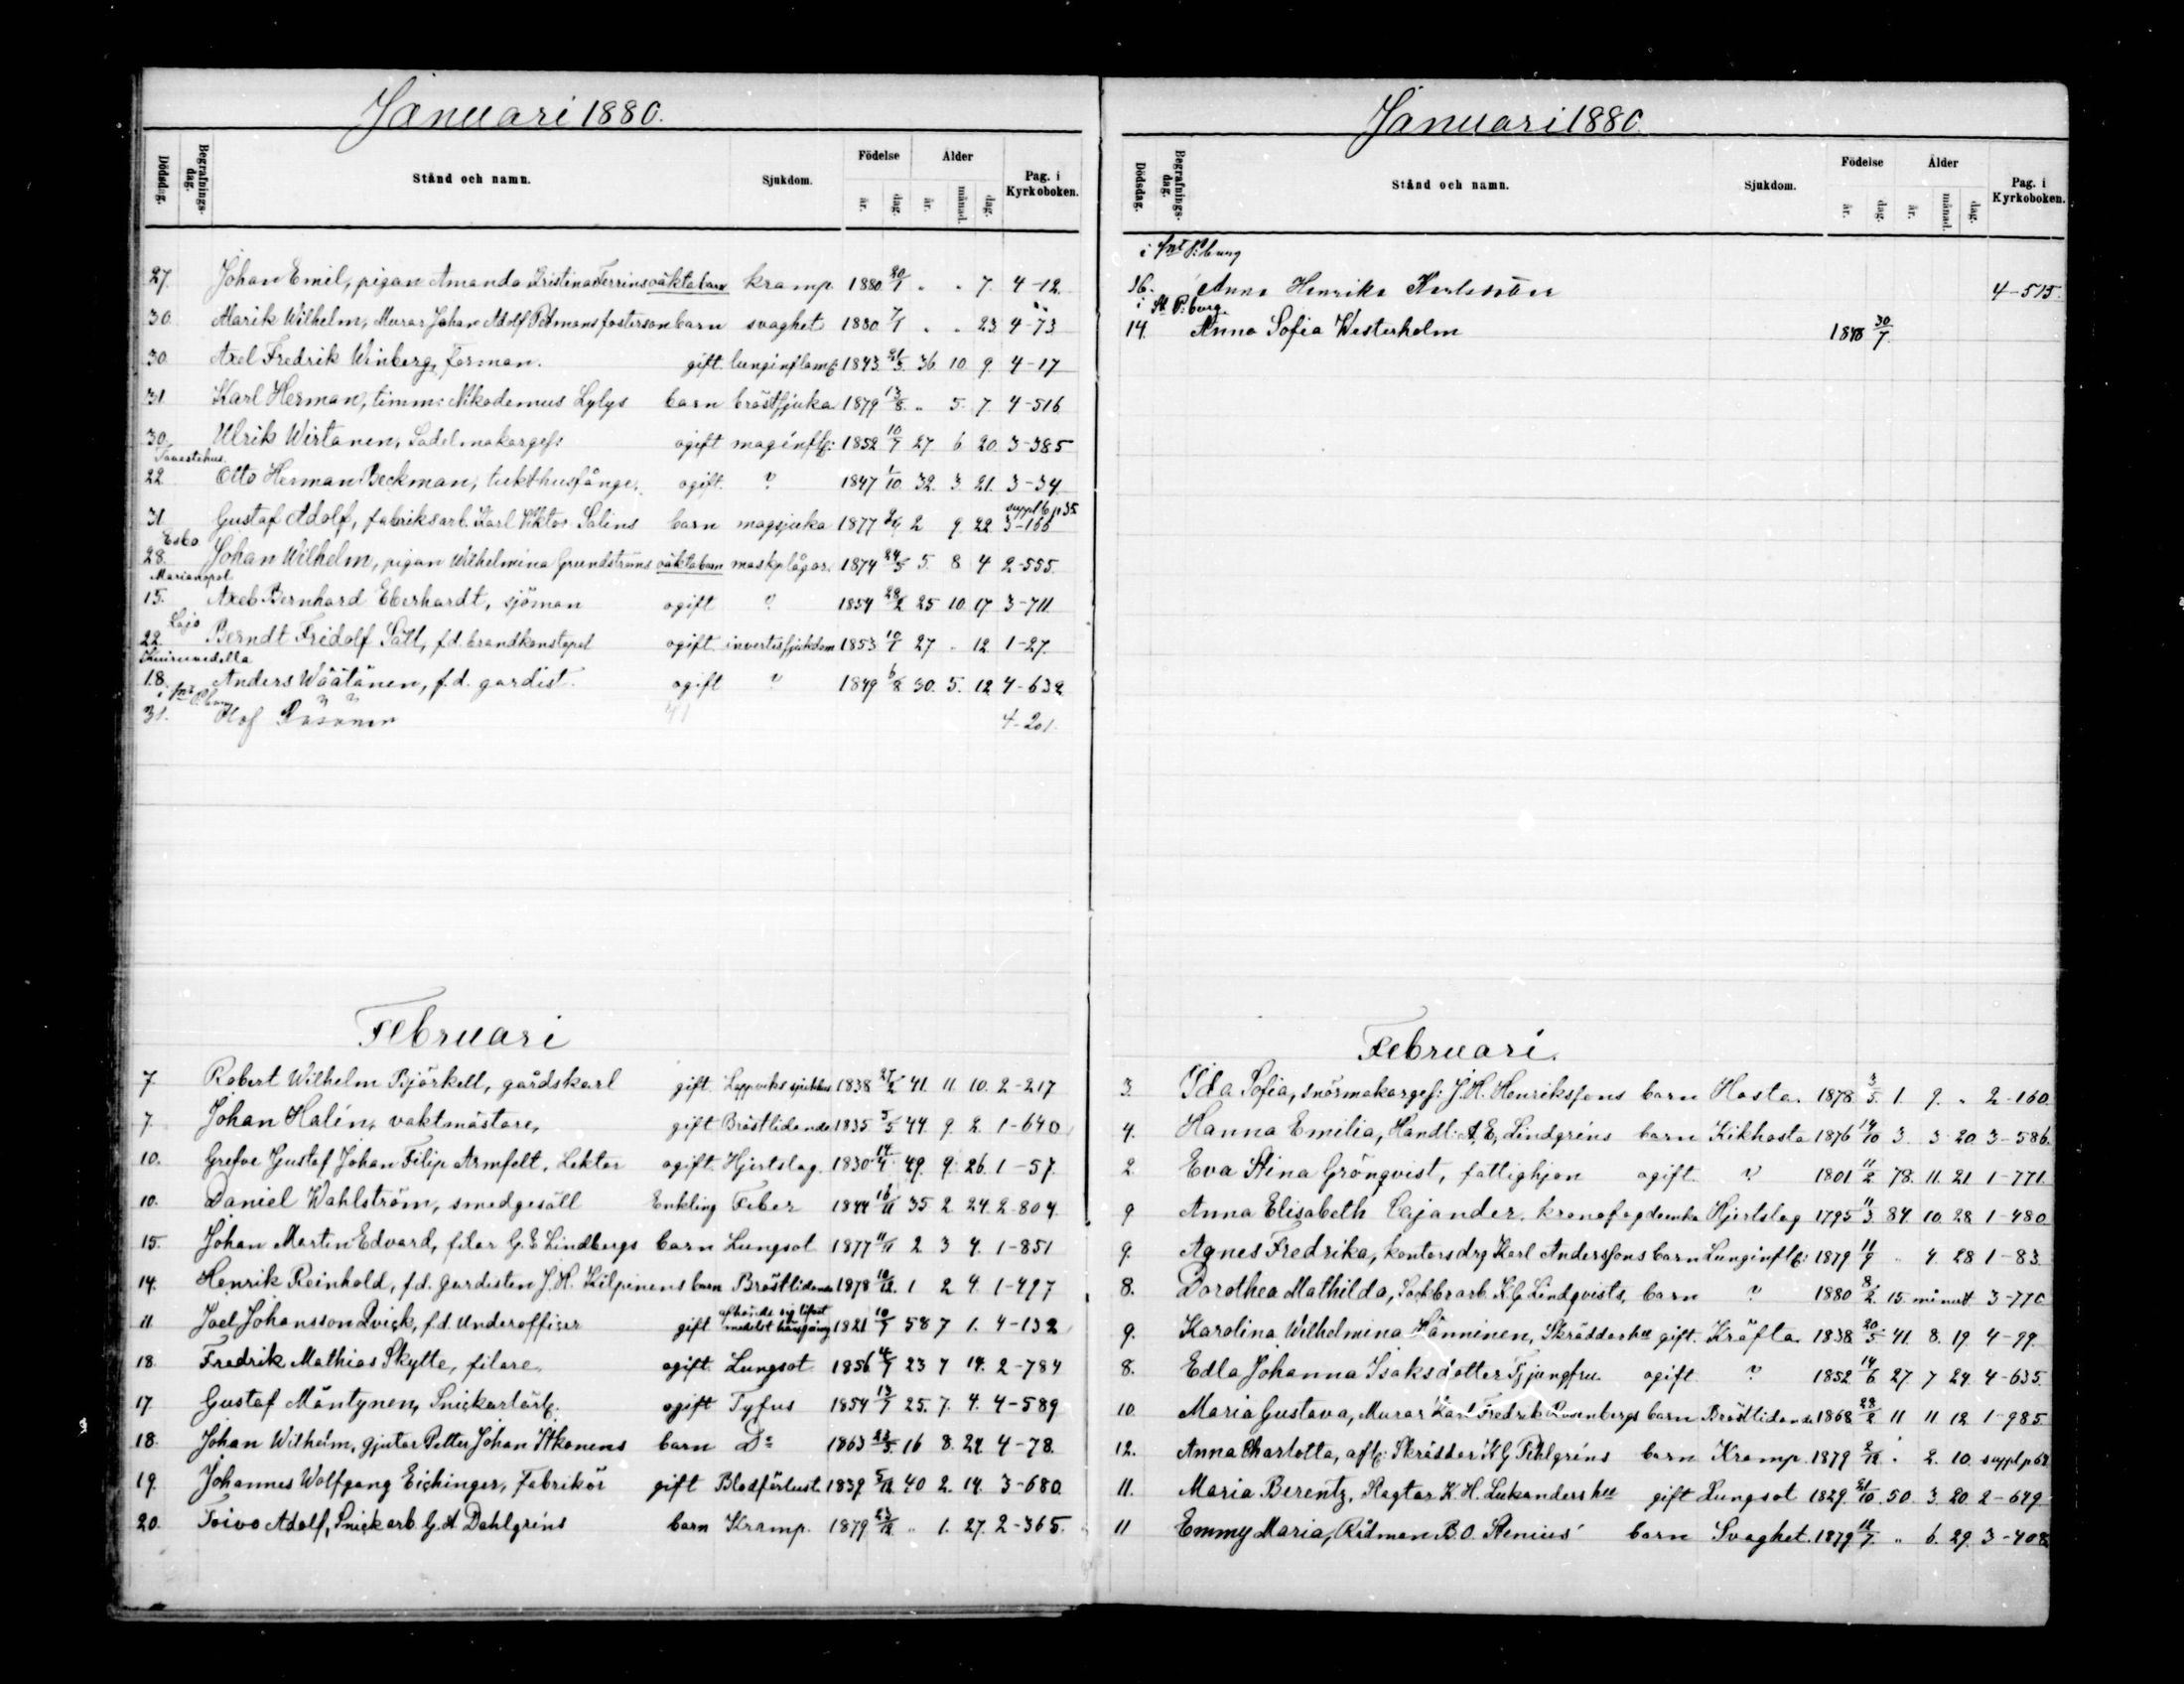 Januari 1880.
Dödsdag. Begrafnings-dag. Stånd och namn. Sjukdom. Födelse år. dag. Ålder år. månad. dag. Pag. i Kyrkoboken.
27. Johan Emil, pigan Amanda Kristina Ferrins oäkta barn kramp. 1880 20/1 „ „ 7. 4-12.
30 Marik Wilhelm, Murar Johan Adolf Pettmans fosterson barn svaghet 1880 7/1 „ „ 23 4-73
30 Axel Fredrik Winberg, Forman. gift lunginflamf: 1843 21/3 36. 10. 9. 4-17
31 Karl Herman, timm: Nikodemus Lylys barn bröstsjuka 1879 13/8 „ 5. 7. 4-516
30. Ulrik Wirtanen, Sadelmakargess ogift maginflf: 1852 10/7 27 6 20. 3-385
Tavastehus.
22 Otto Herman Beckman, tukthusfånge. ogift. ? 1847 1/10 32. 3. 21. 3-34.
31 Gustaf Adolf, fabriksarb. Karl Viktor Salins barn magsjuka 1877 9/4 2 9. 22. 3-166 suppl b p 35
Esbo
28. Johan Wilhelm, pigan Wilhelmina Grundströms oäkta barn maskplågor. 1874 24/5 5. 8 4 2-555.
Marianopol
15. Axel Bernhard Eberhardt, sjöman ogift ? 1854 28/2 25 10. 17. 3-711
Lojo
22 Berndt Fridolf Sält, f.d. brandkonstapel ogift invertis sjukdom 1853 10/1 27 „ 12. 1-27.
18. Anders Wäätänen, f.d. gardist. ogift ? 1849 6/8 30. 5. 12 4-632
i St P:burg
31. Olof Räsänen 4-201.
Februari
7. Robert Wilhelm Björkell, gårdskarl gift Lappviks sjukhus 1838 27/2 41. 11. 10. 2-217
7. Johan Halén, vaktmästare, gift Bröstlidande 1835 5/5 44. 9. 2. 1-640
10. Grefve Gustaf Johan Filip Armfelt, Lektor ogift. Hjertslag. 1830 14/4 49. 9. 26. 1-57.
10. Daniel Wahlström, smedgesäll Enkling Feber 1844 16/11 35 2. 24. 2-804.
15. Johan Martin Edvard, filar G. E Lindbergs barn Lungsot 1877 11/11 2 3 4. 1-851
14. Henrik Reinhold, f.d. gardisten J. H. Kilpinens barn Bröstlidande 1878 10/12 1 2 4. 1-497
11 Joel Johansson Qvick, f.d. Underofficer gift afhände sig lifvet medelst hängning 1821 10/7 58 7 1. 4-132
18. Fredrik Mathias Skytte, filare. ogift Lungsot 1856 4/7 23 7 14. 2-784
17 Gustaf Mäntynen, Snickarlärl. ogift Tyfus 1854 13/7 25. 7. 4. 4-589
18. Johan Wilhelm, gjutar Petter Johan Itkonens barn Do 1863 25/5 16 8. 24. 4-78.
19. Johannes Wolfgang Eichinger, Fabrikör gift Blodförlust. 1839 5/12 40 2. 14. 3-680.
20. Toivo Adolf, Snickarb. G. A. Dahlgrens barn Kramp. 1879 23/12 „ 1. 27. 2-365.
Januari 1880.
Dödsdag. Begrafnings-dag. Stånd och namn. Sjukdom. Födelse år. dag. Ålder år. månad. dag. Pag. i Kyrkoboken.
i St P:burg
16. Anna Henrika Karlsdotter 4-515.
i St P:burg.
14. Anna Sofia Westerholm 1878 30/7
Februari.
3. Ida Sofia, snörmakarges: J. H. Henrikssons barn Hosta. 1878 3/5. 1. 9. „ 2-160.
4. Hanna Emilia, Handl: A. E. Lindgréns barn Kikhosta 1876 14/10 3. 3 20 3-586.
2. Eva Stina Grönqvist, fattighjon ogift. ? 1801 11/2 78. 11. 21 1-771.
9 Anna Elisabeth Cajander, kronofogdeenka Hjertslag 1795 11/3 84. 10. 28 1-480
9. Agnes Fredrika, kontorsdrg Karl Anderssons barn Lunginflf: 1879 11/9 „ 4. 28 1-83.
8. Dorothea Mathilda, Sockbrarb. K. G. Lindqvists, barn ? 1880 8/2 15 minut 3-770
9. Karolina Wilhelmina Hänninen, Skräddarhu gift. Kräfta. 1838 20/5 41. 8. 19. 4-99.
8. Edla Johanna Isaksdotter Tjjungfru. ogift. ? 1852 14/6 27. 7 24. 4-635.
10. Maria Gustava, Murar Karl Fredrik Rosenbergs barn Bröstlidande 1868 28/2 11 11 12 1-985
12. Anna Charlotta, afl: Skräddar K G Pihlgréns barn Kramp. 1879 2/12 „ 2. 10. suppl p 68
11. Maria Berentz, Ragtar K. H. Lukanders hu gift Lungsot 1829 21/10 50. 3. 20. 2-649
11 Emmy Maria, Rådman B. O. Stenius' barn Svaghet. 1879 12/7. „ 6. 29. 3-408